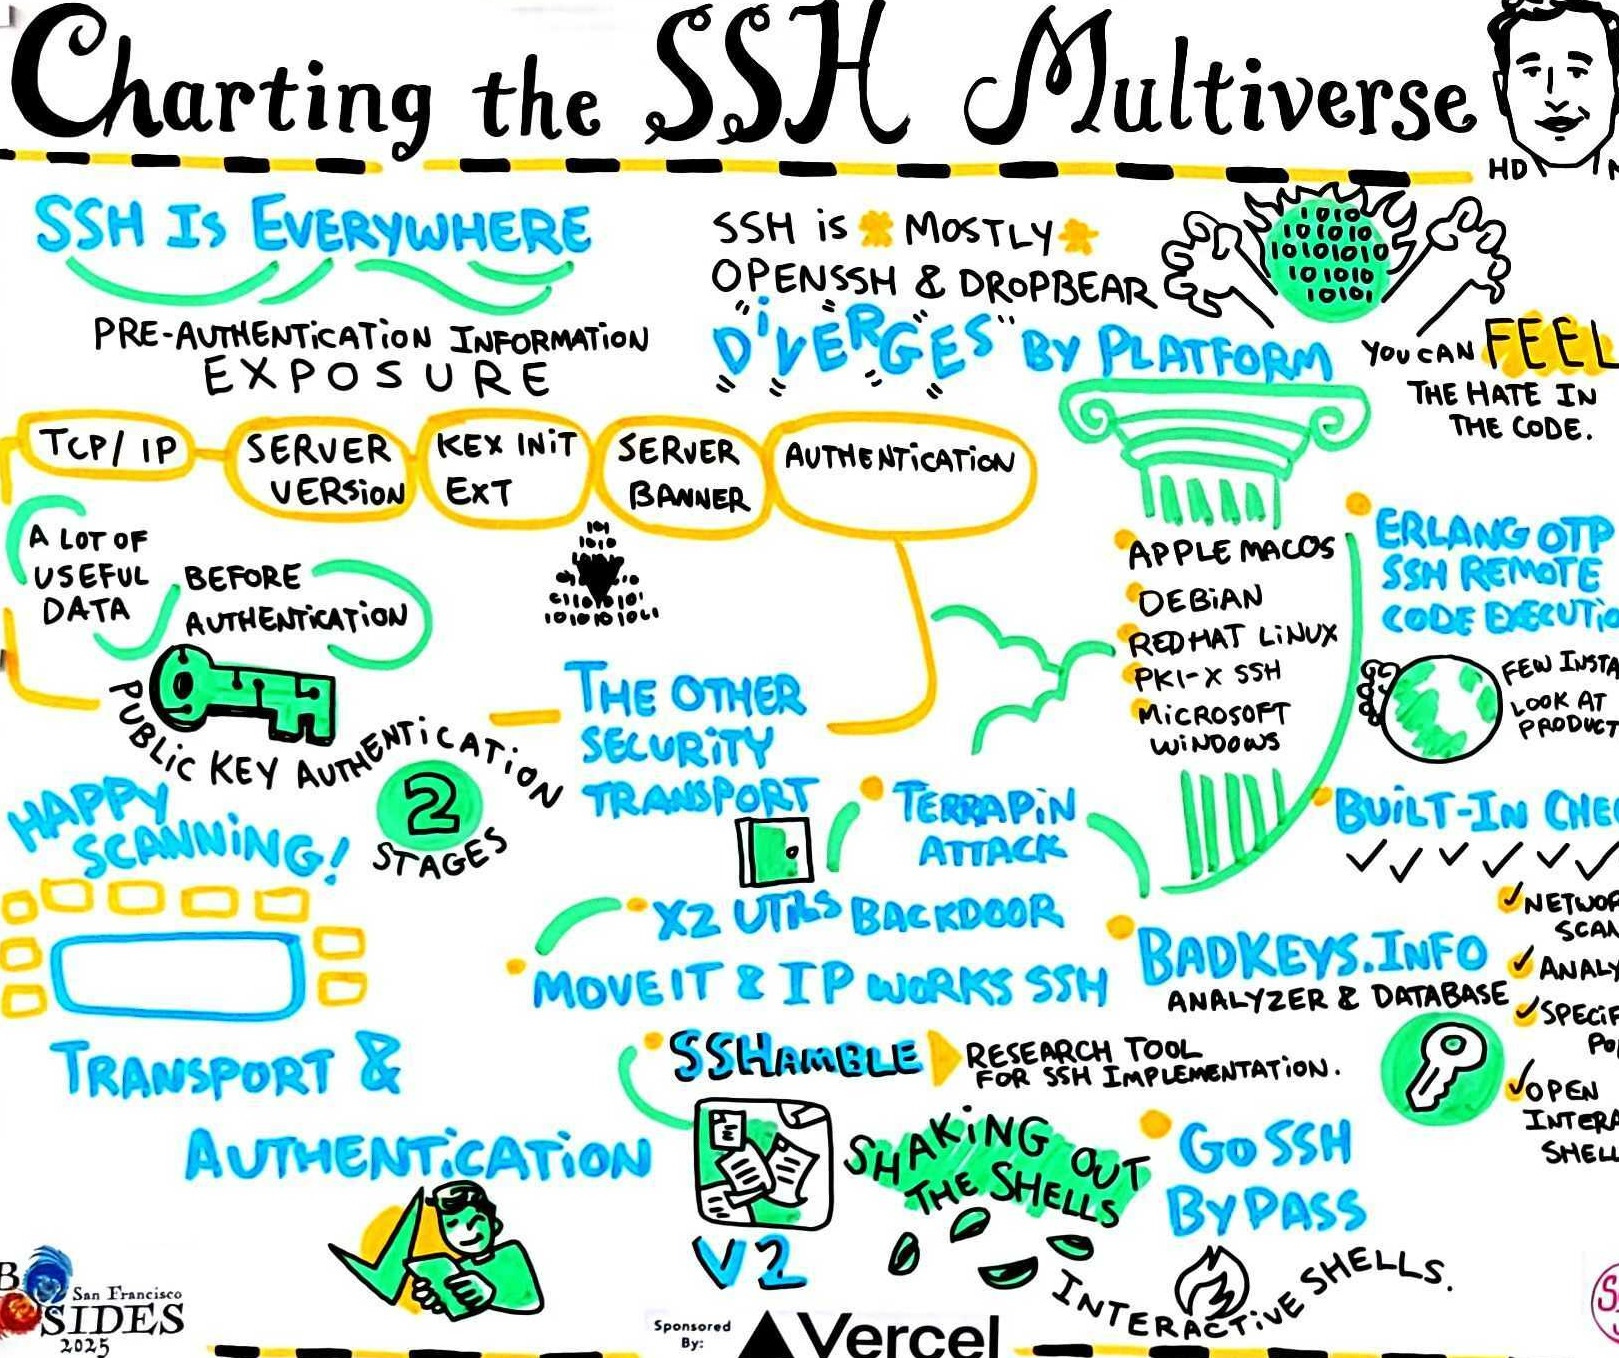 Charting the SSH Multiverse
HD
SSH IS EVERYWHERE
PRE-AUTHENTICATION INFORMATION
EXPOSURE
SSH IS MOSTLY
OPENSSH & DROPBEAR
"DIVERGES" BY PLATFORM
1010
101010
10101010
101010
10101
YOU CAN FEEL
THE HATE IN
THE CODE.
TCP/IP
SERVER
VERSION
KEX INIT
EXT
SERVER
BANNER
AUTHENTICATION
A LOT OF
USEFUL
DATA
BEFORE
AUTHENTICATION
PUBLIC KEY AUTHENTICATION
2
STAGES
THE OTHER
SECURITY
TRANSPORT
APPLE MACOS
DEBIAN
REDHAT LINUX
PKI-X SSH
MICROSOFT
WINDOWS
ERLANG OTP
SSH REMOTE
CODE EXECUTIO
FEW INSTA
LOOK AT
PRODUCT
HAPPY
SCANNING!
TERRAPIN
ATTACK
X2 UTILS BACKDOOR
MOVEIT & IP WORKS SSH
BUILT-IN CHE
NETWOR
SCAN
ANALY
SPECIF
PO
OPEN
INTERA
SHELL
BADKEYS.INFO
ANALYZER & DATABASE
TRANSPORT &
AUTHENTICATION
SSHAMBLE
RESEARCH TOOL
FOR SSH IMPLEMENTATION.
V2
SHAKING OUT
THE SHELLS
GO SSH
BYPASS
INTERACTIVE SHELLS.
B
San Francisco
SIDES
2025
Sponsored
By:
Vercel